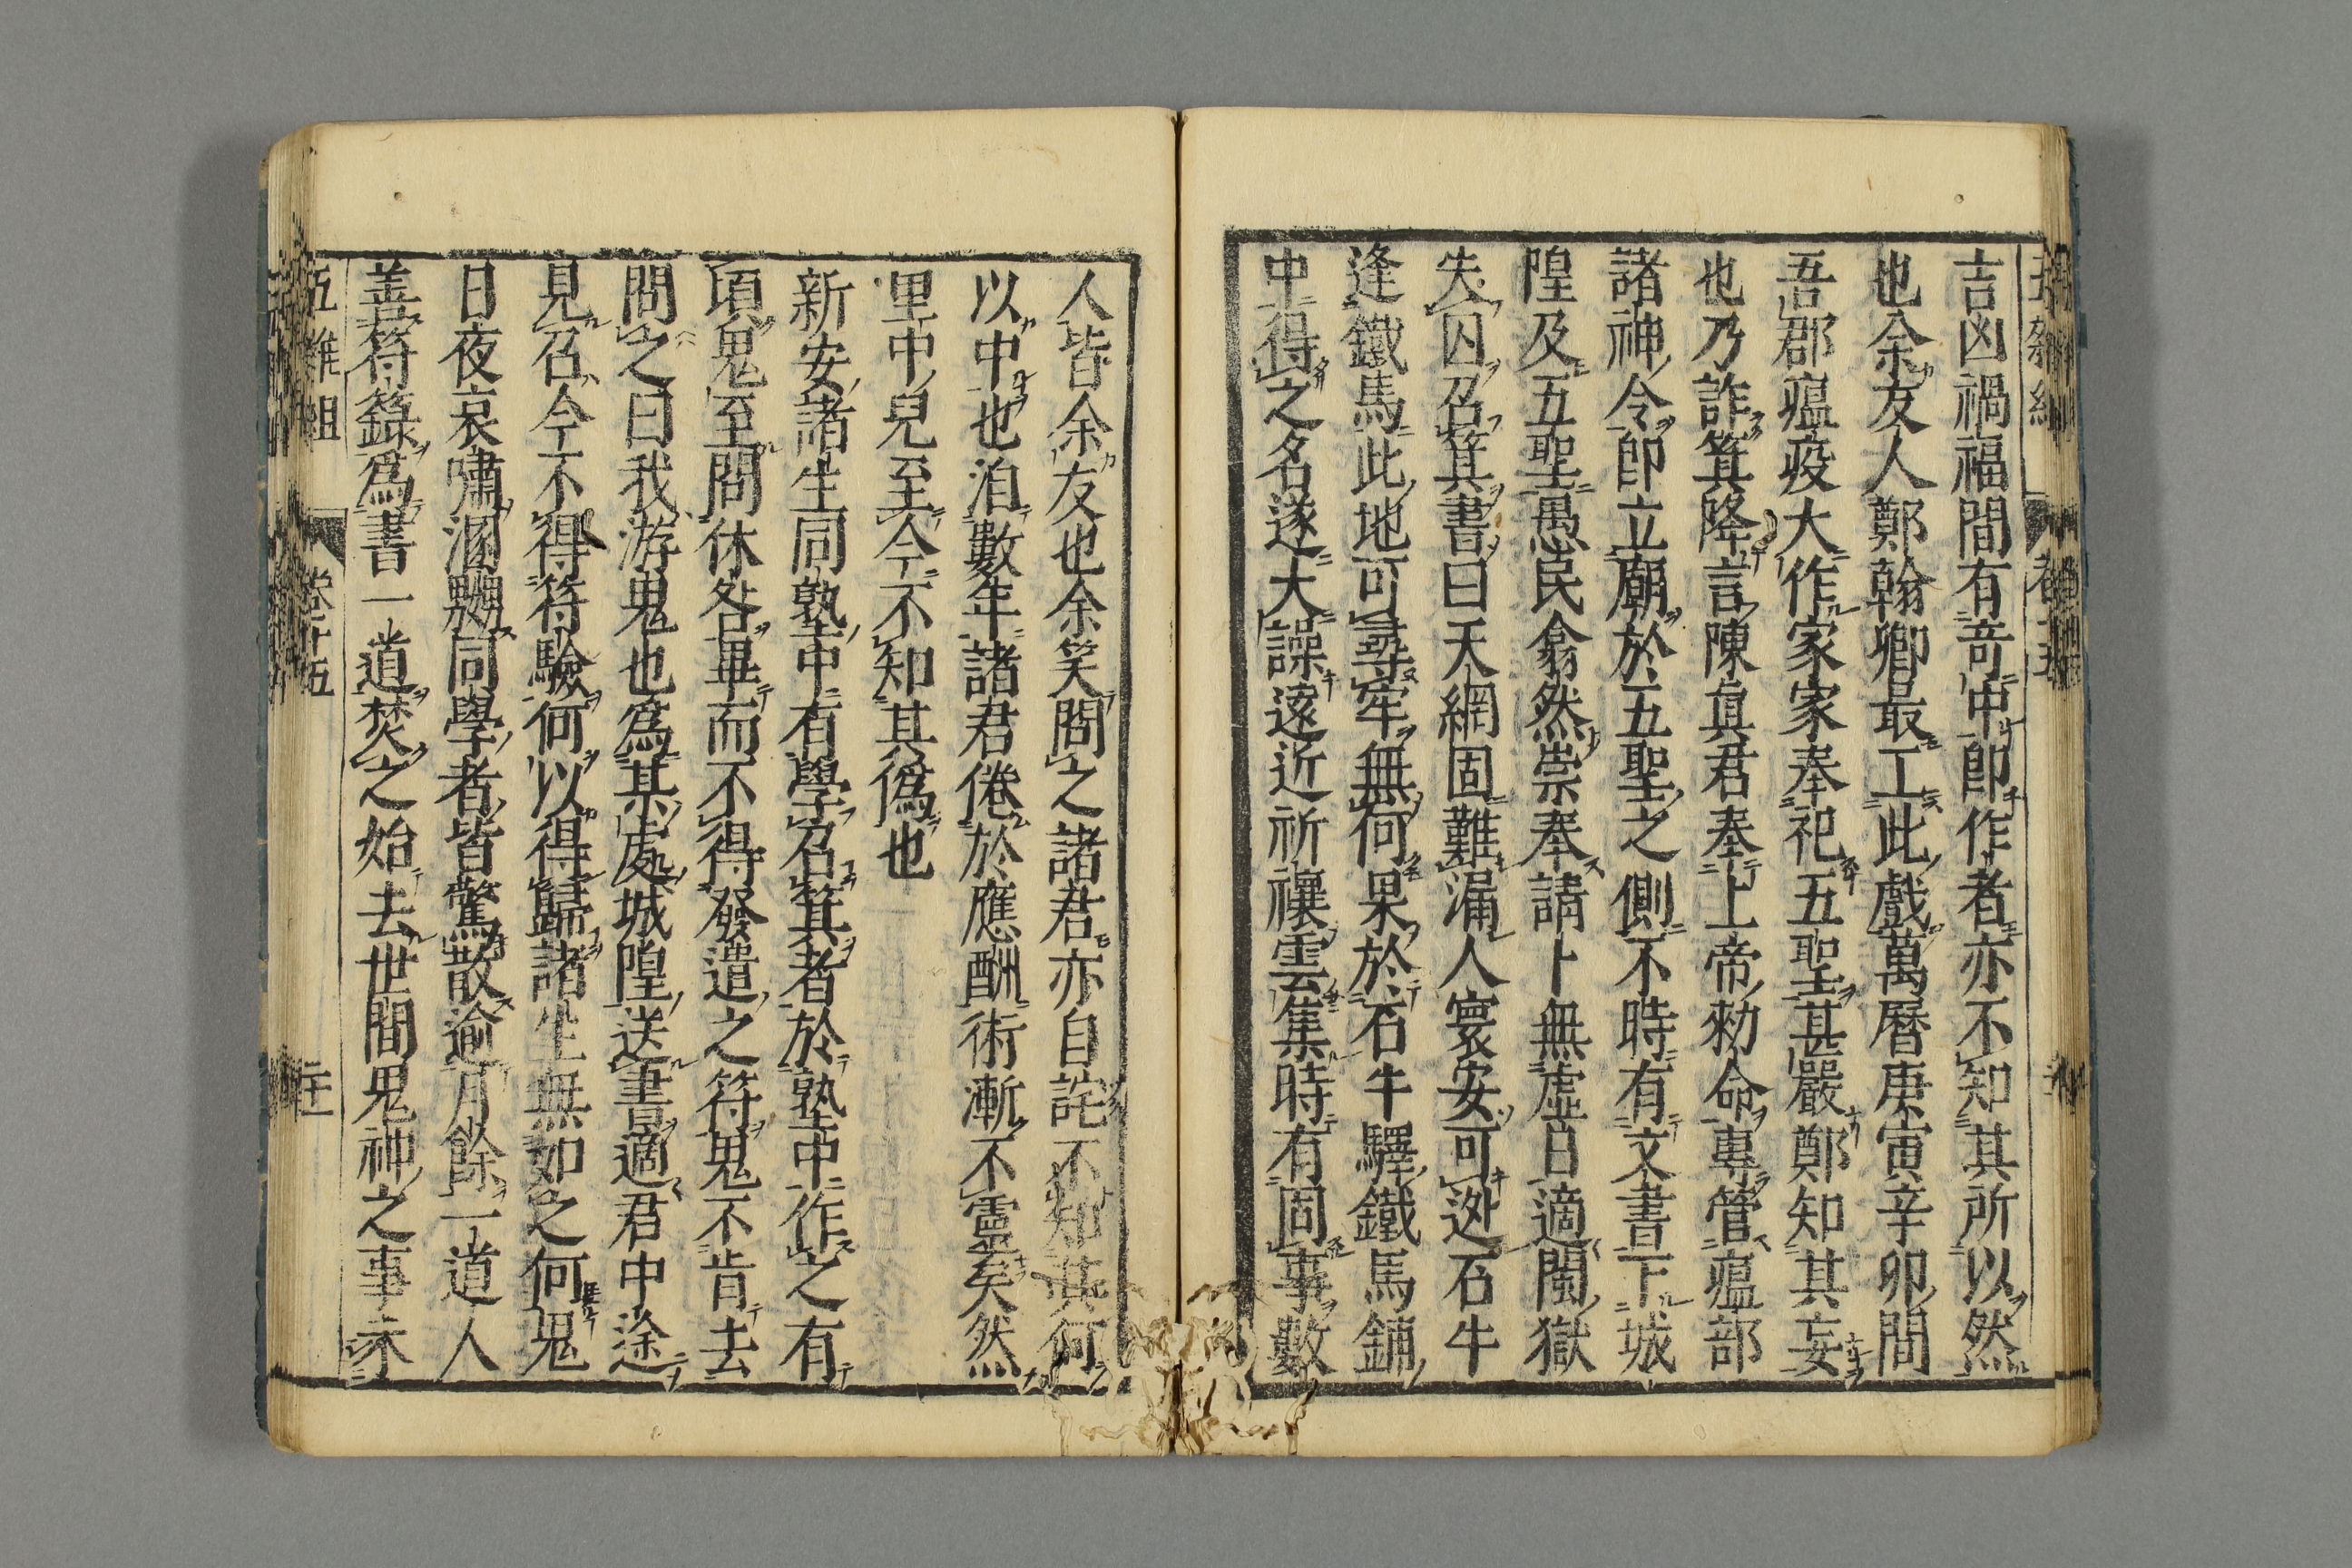 吉凶禍福間有竒中即作者亦不知其所以然
也余友人鄭翰卿最工此戲萬曆庚寅辛卯間
吾郡瘟疫大作家家奉祀五聖甚嚴鄭知其妄
也乃詐箕降言陳眞君奉上帝勑命專管瘟部
諸神令即立廟於五聖之側不時有文書下城
隍及五聖愚民翕然崇奉請卜無虛日適閩獄
失囚召箕書曰天網固難漏人寰安可逃石牛
逢鐵馬此地可尋牢無何果於石牛驛鐵馬鋪
中得之名遂大譟遠近祈禳雲集時有同事數
人皆余友也余笑問之諸君亦自詫不知其何
以中也洎數年諸君倦於應酬術漸不靈矣然
里中兒至今不知其僞也
新安諸生同塾中有學召箕者於塾中作之有
頃鬼至問休咎畢而不得發遣之符鬼不肯去
問之曰我游鬼也爲某處城隍送書適君中途
見召今不得符驗何以得歸諸生無如之何鬼
日夜哀嘯溷嬲同學者皆驚散逾月餘一道人
善符籙爲書一道焚之始去世間鬼神之事未
五雜組
卷十五
二十一